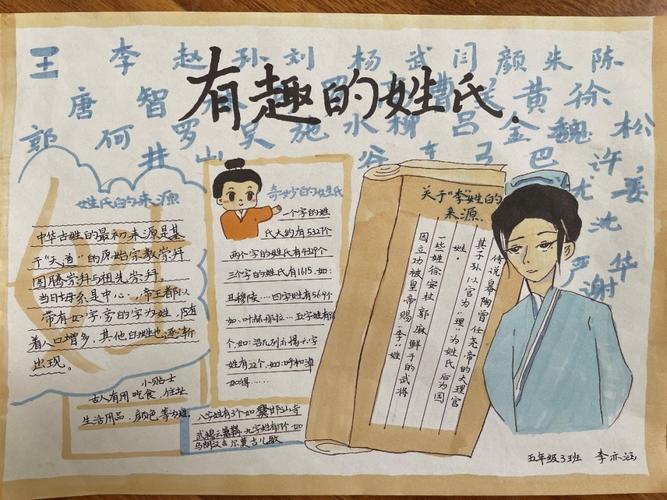 王 李 赵 孙 刘 杨 武 闫 颜 朱 陈
唐 智 黄 徐
郭 何 罗 吴 施 水 柳 吕 金 魏 松
井 山 谷 车 弓 巴 许 姜
尤 沈
严 谢 华
有趣的姓氏
姓氏的来源
中华古姓的最初来源是基
于“天首”的原始宗教崇拜
图腾崇拜与祖先崇拜
当日母系是中心
带有女字旁的字为姓,随
着人口增多,其他的姓也逐渐
出现。
小贴士
古人有用吃食、住址
生活用品、颜色等为姓
奇妙的姓氏
一个字的姓
氏大约有5327个
两个字的姓氏有4329个
三个字的姓氏有1615.如:
丑穆陵……四字姓有569个
五字姓有
个.如:
姓有22个.如:呼和
八字姓有3个如
九字姓有1个.如
关于“李”姓的
来源
传说皋陶曾任尧帝的大理官
其子孙以官为“理”为姓氏后为因
姓。
一些姓徐安杜郭麻鲜于的武将
因立功被皇帝赐“李”姓
五年级3班 李亦涵